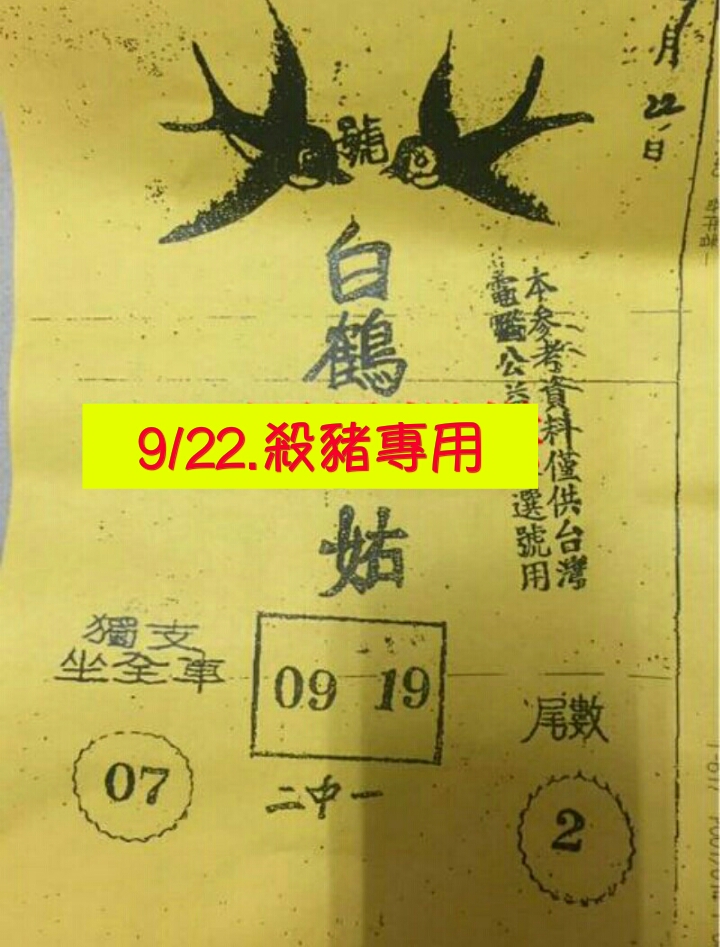 7月22日
號
白鶴
9/22.殺豬專用
姑
本參考資料僅供台灣
電腦公益
選號用
獨支
坐全車
07
09 19
二中一
尾數
2